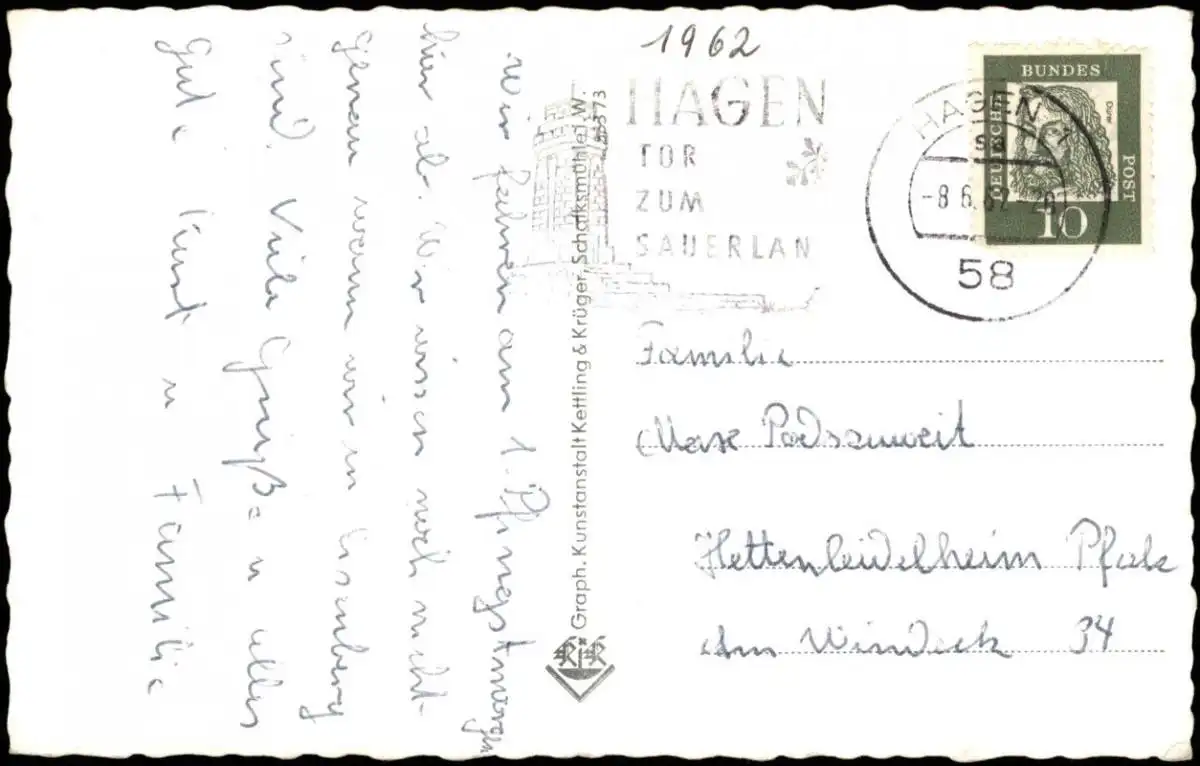 1962
HAGEN
TOR
ZUM
SAUERLAN
HAGEN
-8.6.62-20
58
DEUTSCHE
BUNDES
POST
Dürer
10
wir fahren am 1. Pfingstmorgen
hier ab. Wir wissen noch nicht
genau wann wir in Eisenberg
sind. Viele Grüße u alles
Gute Kurt u Familie
Graph. Kunstanstalt Kettling & Krüger, Schalksmühle i. W.
Familie
Max Podszuweit
Hettenleidelheim Pfalz
Am Windeck 34